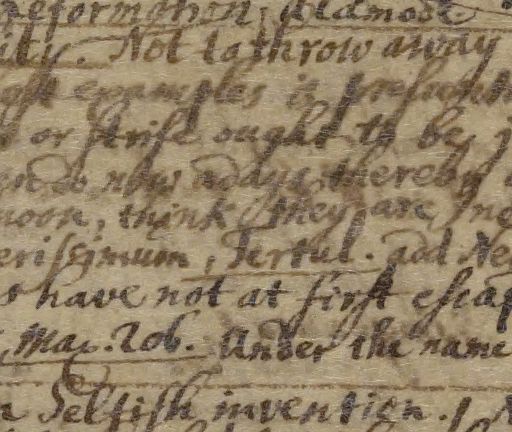 reformation, oldmode
ity. Not to throw away
examples is presumpt
or strife ought to be
now adays, thereby
moon, think they are
erissimum, Tertul. add Ne
s have not at first escap
, Mac. 206. Under the name
n Selfish invention.